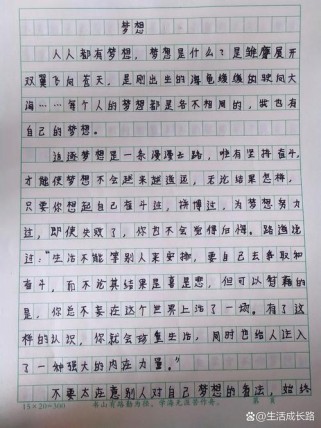 梦想
人人都有梦想，梦想是什么？是雏鹰展开
双翼飞向苍天，是刚出生的海龟缓缓的驶向大
海……每个人的梦想都是各不相同的，我也有
自己的梦想。
追逐梦想是一条漫漫长路，唯有坚持奋斗，
才能使梦想不会越来越遥远，无论结果怎样，
只要你想起自己奋斗过，拼搏过，为梦想努力
过，即使失败了，你也不会觉得后悔。路遥说
过："生活不能等别人来安排，要自己去争取和
奋斗，而不论其结果是喜是悲，但可以慰藉的
是，你总不枉在这个世界上活了一场。有了这
样的认识，你就会珍重生活，同时也给人注入
了一种强大的内在力量。"
不要太在意别人对自己梦想的看法，始终
15×20=300 书山有路勤为径，学海无涯苦作舟。 第 页
@生活成长路